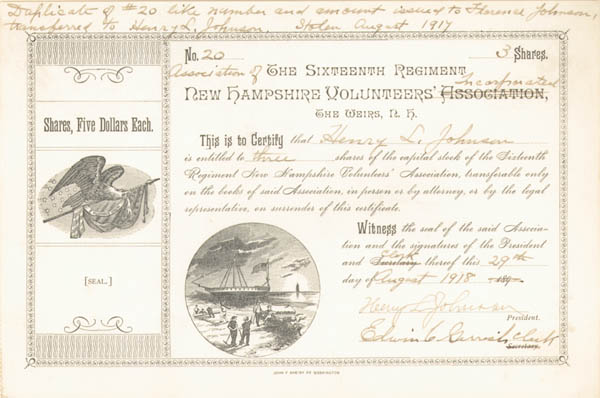 Duplicate of #20 like number and amount issued to Florence Johnson,
transferred to Henry L. Johnson, Stolen August 1917
No. 20
3 Shares.
Association of THE SIXTEENTH REGIMENT Incorporated
NEW HAMPSHIRE VOLUNTEERS' ASSOCIATION,
THE WEIRS, N. H.
Shares, Five Dollars Each.
[SEAL.]
This is to Certify that Henry L. Johnson
is entitled to three shares of the capital stock of the Sixteenth
Regiment New Hampshire Volunteers' Association, transferable only
on the books of said Association, in person or by attorney, or by the legal
representative, on surrender of this certificate.
Witness the seal of the said Associa-
tion and the signatures of the President
and Clerk Secretary thereof this 29th
day of August 1918 189
Henry L Johnson
President.
Edwin C Gerrish, clerk
Secretary.